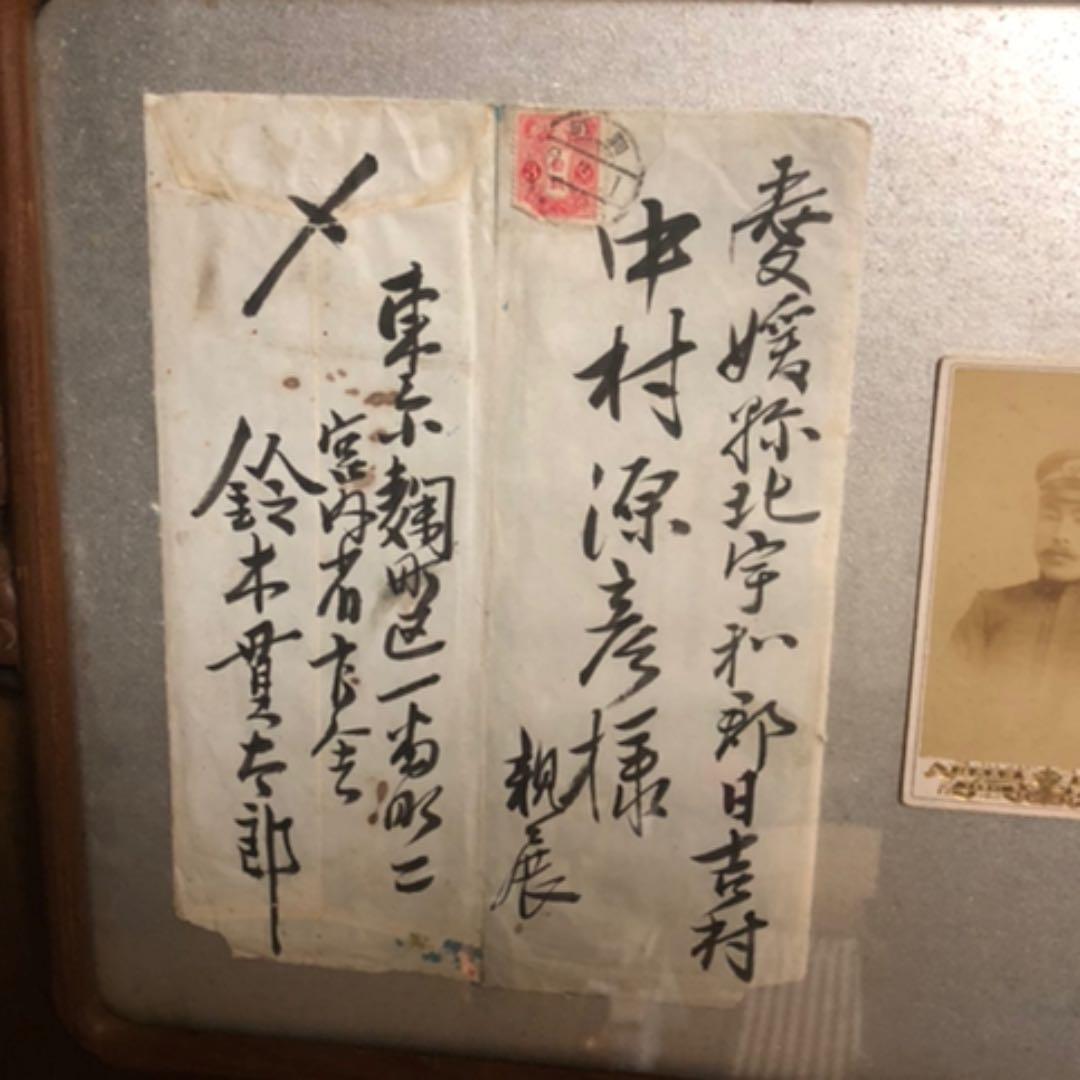 愛媛縣北宇和郡日吉村
中村源彦様
親展
東京麹町区一番町二
宮内省官舎
鈴木貫太郎
〆